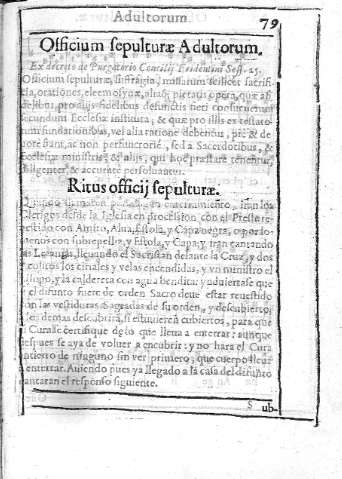 Adultorum 79
Officium sepulturæ Adultorum.
Ex decreto de Purgatorio Concilij Tridentini Sess. 25.
Officium sepulturæ, suffragia, missarum scilicet sacrifi-
cia, orationes, eleemosynæ, aliaq; pietatis opera, quæ a fi
delibus pro alijs fidelibus defunctis fieri consueuerunt
secundum Ecclesiæ instituta; & quæ pro illis ex testato
rum fundationibus, vel alia ratione debentur, pie & de
uote fiant, ac non perfunctorie, sed a Sacerdotibus, &
Ecclesiæ ministris, & alijs, qui hoc præstare tenentur,
diligenter, & accurate persoluantur.
Ritus officij sepulturæ.
enterramiento, iran los
Clerigos desde la Iglesia en procession con el Preste re-
uestido con Amito, Alua, Estola, y Capa negra, o por lo
menos con sobrepelliz, y Estola, y Capa; y iran cantando
la Letania, lleuando el Sacristan delante la Cruz, y dos
los ciriales y velas encendidas, y vn ministro el
ysopo, y la caldereta con agua bendita: y aduiertase que
si el difunto fuere de orden Sacro deue estar reuestido
con las vestiduras Sagradas de su orden, y descubierto,
los demas descubrira, si estuuieren cubiertos, para que
el Cura se certifique de lo que lleua a enterrar: aunque
despues se aya de voluer a encubrir: y no hara el Cura
entierro de ninguno sin ver primero, que cuerpo lleua
a enterrar. Auiendo pues ya llegado a la casa del difunto
cantaran el responso siguiente.
S ub-